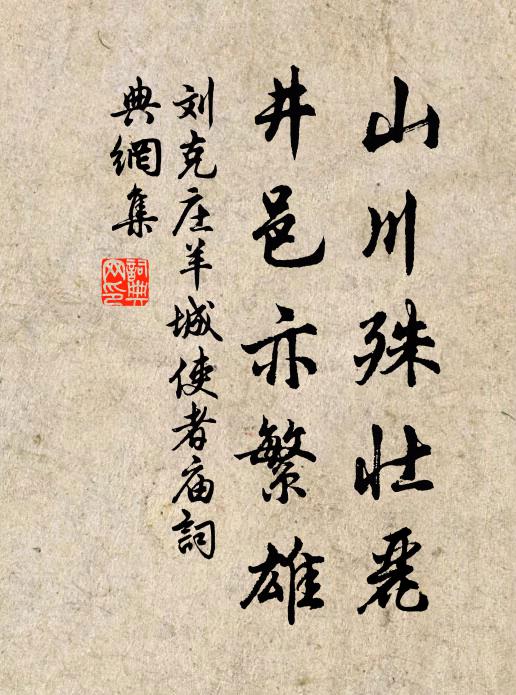 山川殊壮麗
井邑亦繁雄
刘克庄羊城使者庙詞
典網集
詞典网印